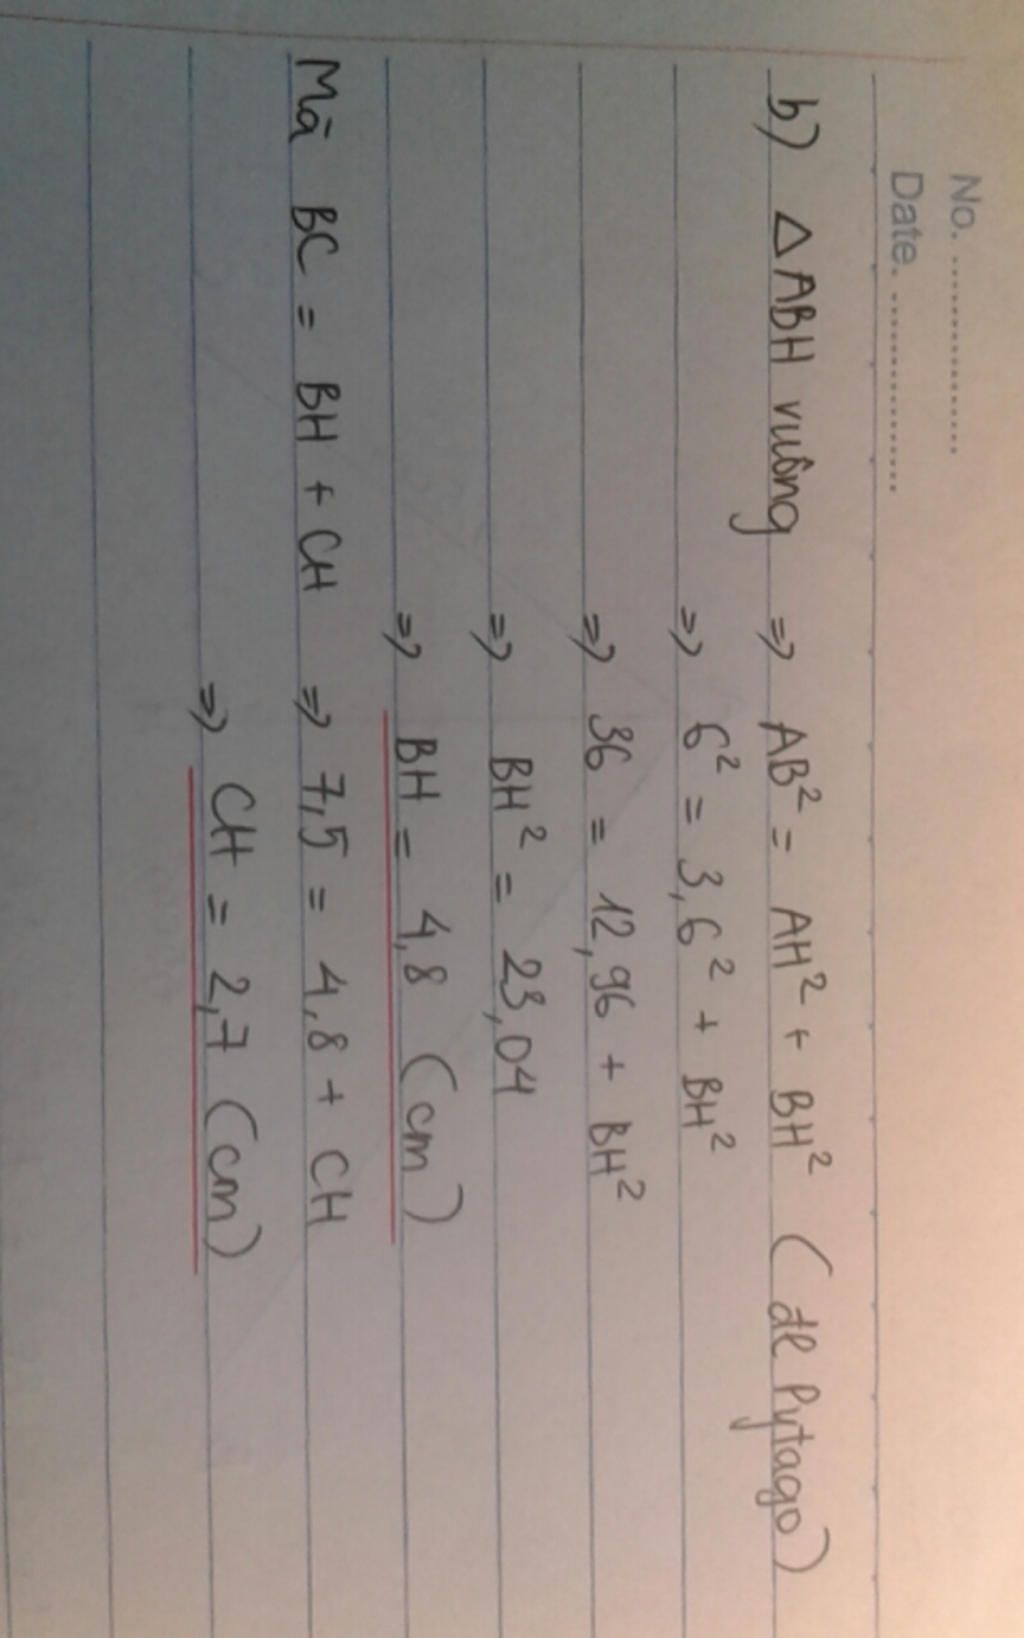 No. ....................
Date. ....................
b) △ABH vuông => AB² = AH² + BH² (đl Pytago)
=> 6² = 3,6² + BH²
=> 36 = 12,96 + BH²
=> BH² = 23,04
=> BH = 4,8 (cm)
Mà BC = BH + CH => 7,5 = 4,8 + CH
=> CH = 2,7 (cm)